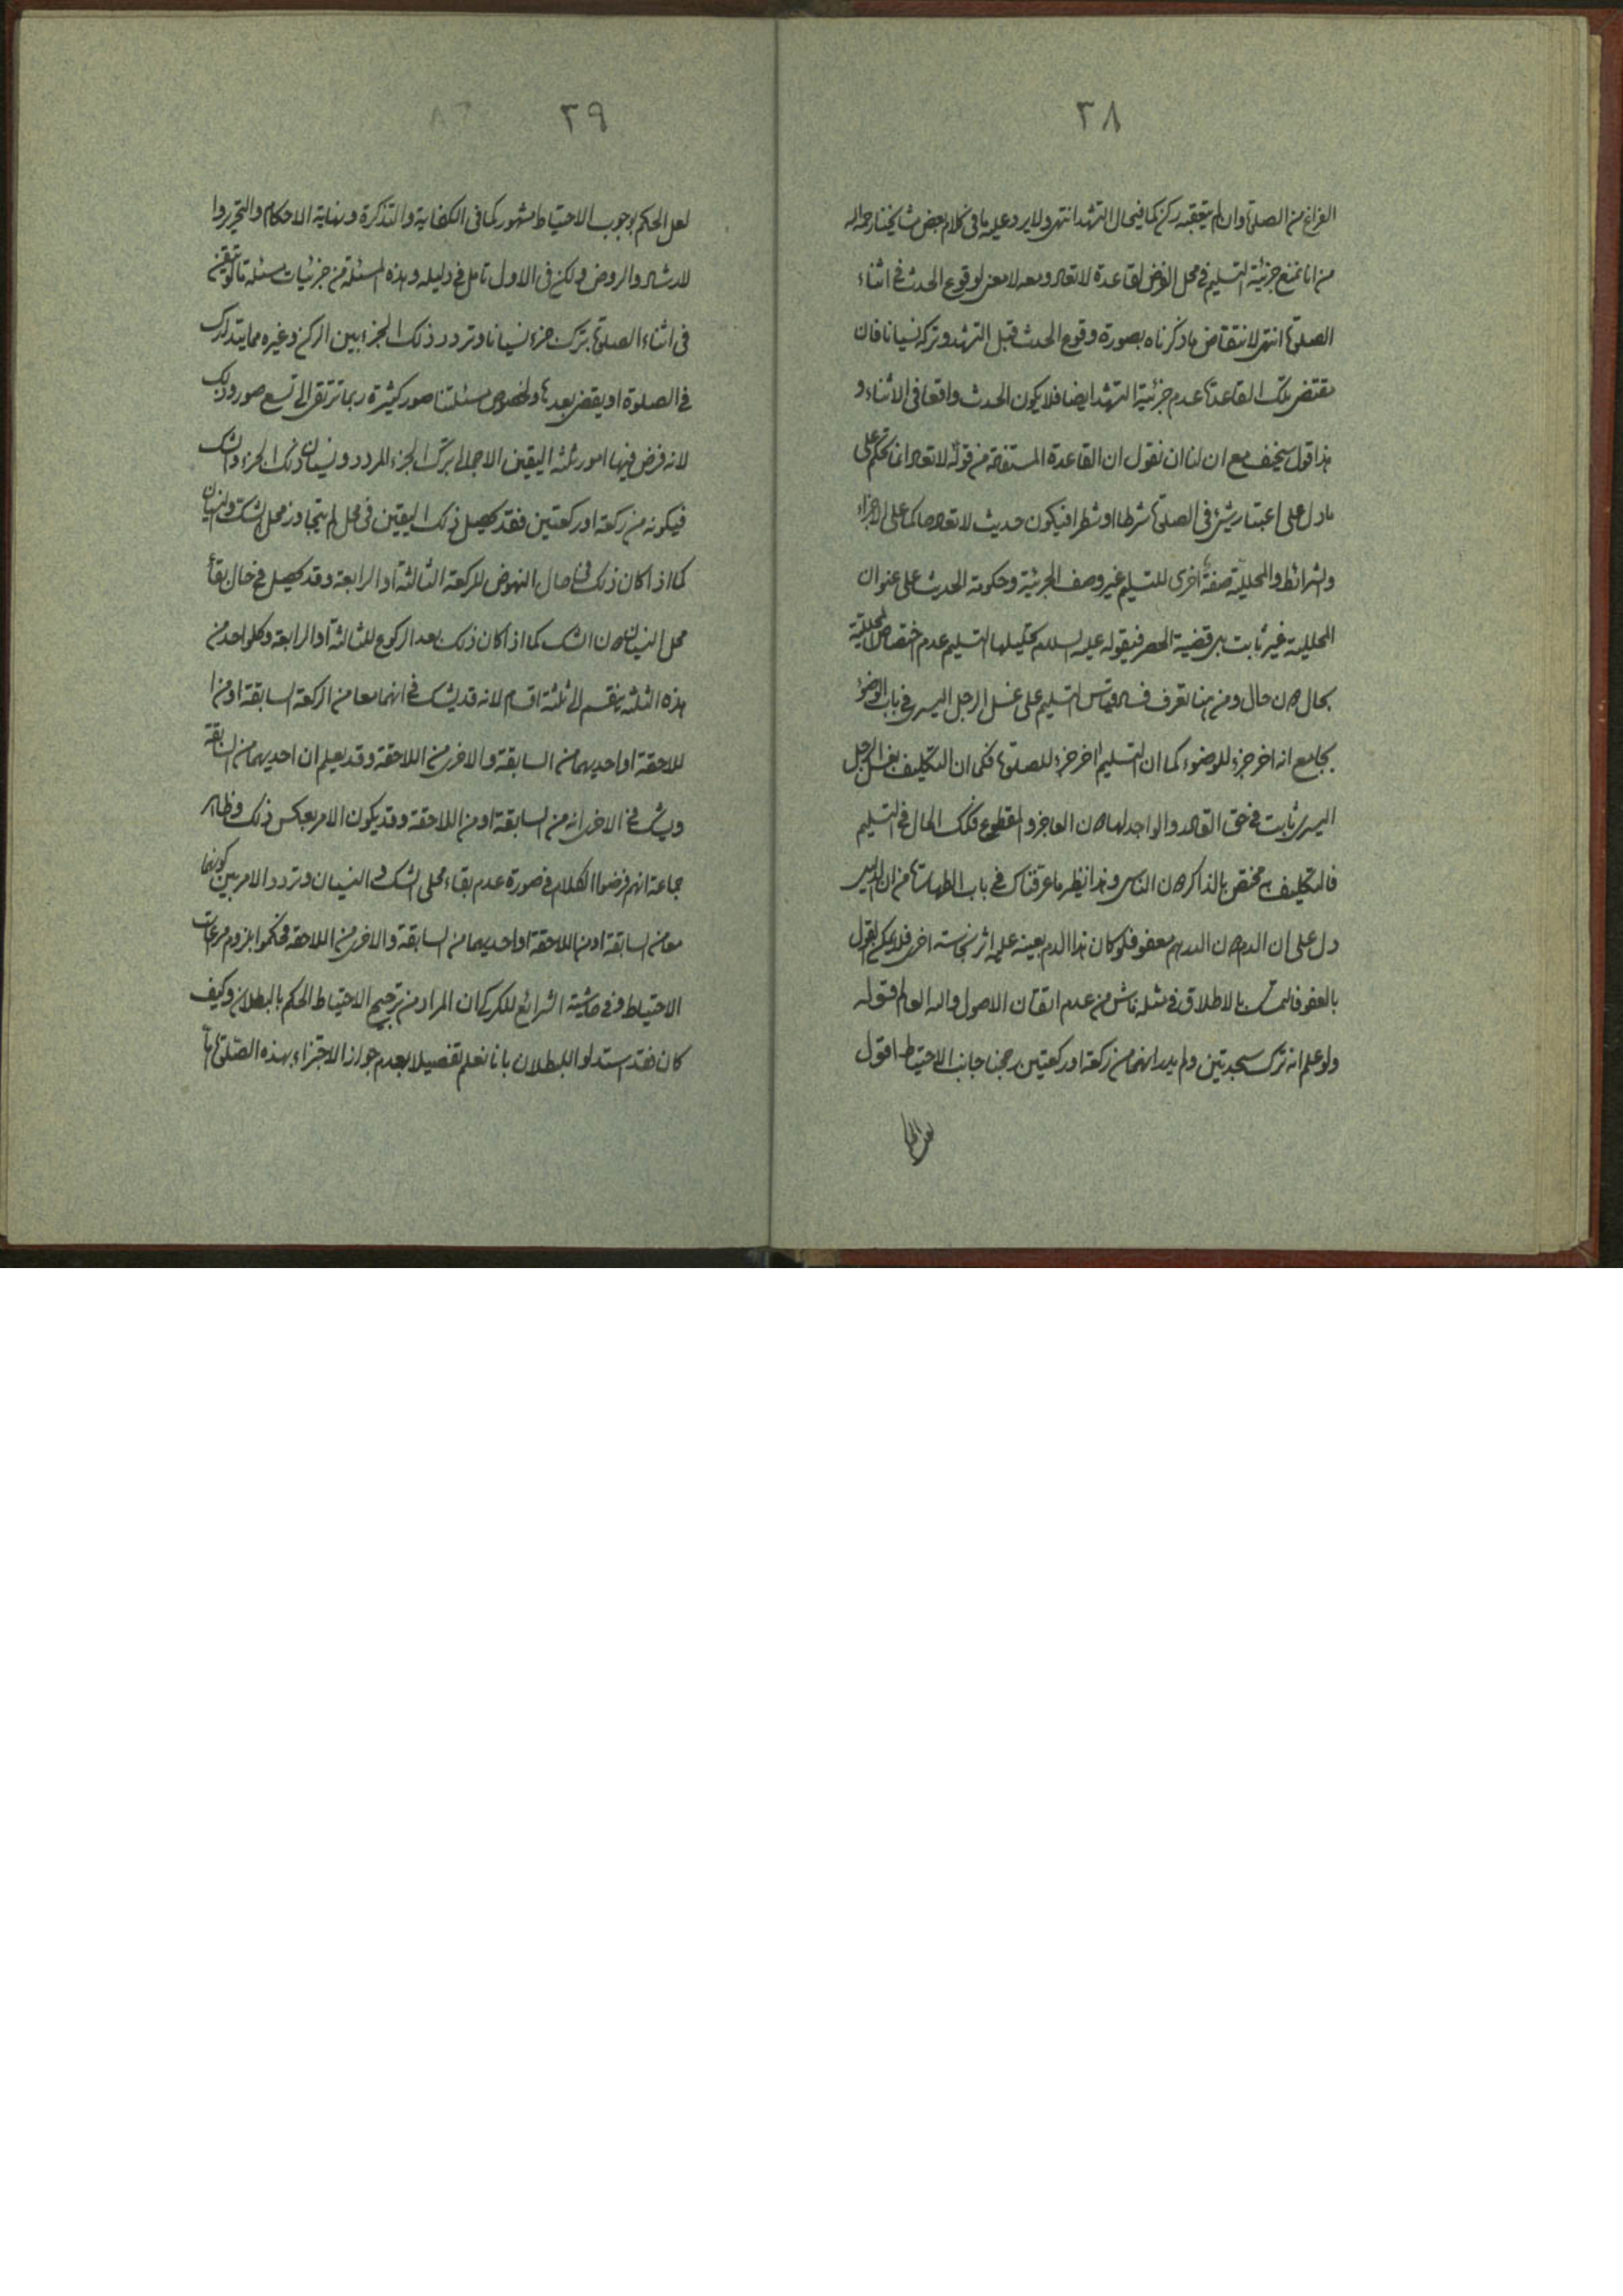 ٣٨
الفراغ من الصلوة وان لم يتعقبه ركن كما فيحال التشهد انتهى ولا يرد عليه ما فى كلام بعض مشايخنا رحمه الله
من انا نمنع جزئية التسليم فى محل الفرض لقاعدة لا تعاد ومعه لا معنى لوقوع الحدث فى اثناء
الصلوة انتهى لانتقاض ما ذكرناه بصورة وقوع الحدث قبل التشهد وتركه نسيانا فان
مقتضى تلك القاعدة عدم جزئية التشهد ايضا فلا يكون الحدث واقعا فى الاثناء و
هذا قول سخيف مع ان لنا ان نقول ان القاعدة المستفادة من قوله لا تعاد انما تحكم على
ما دل على اعتبار شئ فى الصلوة شرطا او شطرا فيكون حديث لا تعاد حاكما على الاجزاء
والشرائط والمحللية صفة اخرى للتسليم غير وصف الجزئية وحكومة الحديث على عنوان
المحللية غير ثابت بل قضية الحصر فيقوله عليه السلام تحليلها التسليم عدم اختصاص المحللية
بحال دون حال ومن هنا تعرف فساد قياس التسليم على غسل الرجل اليسرى فى باب الوضوء
بجامع انه اخر جزء للوضوء كما ان التسليم اخر جزء للصلوة فكما ان التكليف بغسل الرجل
اليسرى ثابت فى حق القادر والواجد لها دون العاجز والمقطوع فكذلك الحال فى التسليم
فالتكليف به مختص بالذاكر دون الناسى وهذا نظير ما عرفناك فى باب الطهارة من ان الدليل
دل على ان الدم دون الدرهم معفو فلو كان هذا الدم بعينه عليه اثر نجاسة اخرى فلا يمكن القول
بالعفو فالتمسك بالاطلاق فى مثله ناش من عدم اتقان الاصول والله العالم قوله
ولو علم انه ترك سجدتين ولم يدر انهما من ركعة او ركعتين رجحنا جانب الاحتياط اقول
لعل الحكم
٣٩
لعل الحكم بوجوب الاحتياط مشهور كما فى الكفاية والتذكرة ونهاية الاحكام والتحرير وا
لارشاد والروض ولكن فى الاول تامل فى دليله وهذه المسئلة من جزئيات مسئلة ما لو تيقن
فى اثناء الصلوة بترك جزء نسيانا وتردد ذلك الجزء بين الركن وغيره مما يتدارك
فى الصلوة او يقضى بعدها ولخصوص مسئلتنا صور كثيرة ربما ترتقى الى تسع صور وذلك
لانه فرض فيها امور ثلثة اليقين الاجمالى بترك الجزء المردد ونسيان ذلك الجزء والشك
فيكونه من ركعة او ركعتين فقد يحصل ذلك اليقين فى محل لم يتجاوز محل الشك والنسيان
كما اذا كان ذلك فى حال النهوض للركعة الثالثة او الرابعة وقد يحصل فى حال بقاء
محل النسيان دون الشك كما اذا كان ذلك بعد الركوع للثالثة او الرابعة وكل واحد من
هذه الثلثة ينقسم الى ثلثة اقسام لانه قد يشك فى انهما معا من الركعة السابقة او من ا
للاحقة او احديهما من السابقة والاخرى من اللاحقة وقد يعلم ان احديهما من السابقة
ويشك فى الاخرى انه من السابقة او من اللاحقة وقد يكون الامر بعكس ذلك وظاهر
جماعة انهم فرضوا الكلام فى صورة عدم بقاء محلى الشك والنسيان وتردد الامر بين كونهما
معا من السابقة او من اللاحقة او احديهما من السابقة والاخرى من اللاحقة فحكموا بلزوم مراعات
الاحتياط وفى حاشية الشرائع للكركى ان المراد من ترجيح الاحتياط الحكم بالبطلان وكيف
كان فقد استدلوا للبطلان بانا نعلم تفصيلا بعدم جواز الاجتزاء بهذه الصلوة